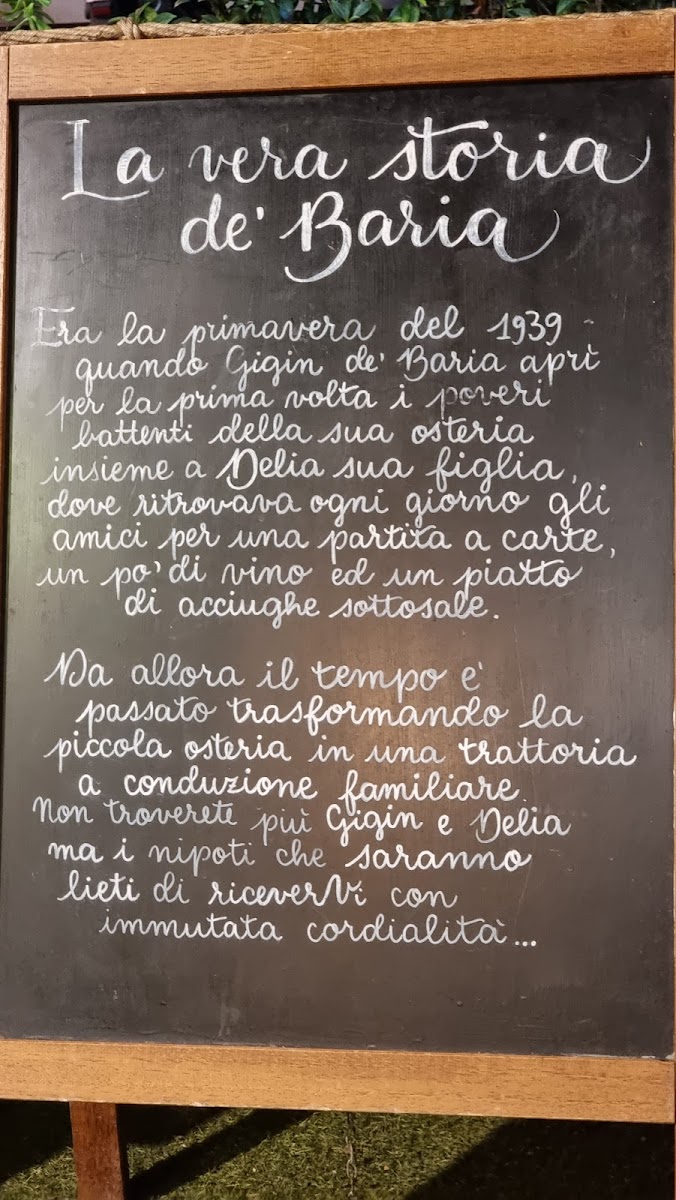 La vera storia
de' Baria
Era la primavera del 1939
quando Gigin de' Baria aprì
per la prima volta i poveri
battenti della sua osteria
insieme a Delia sua figlia,
dove ritrovava ogni giorno gli
amici per una partita a carte,
un po' di vino ed un piatto
di acciughe sottosale.
Da allora il tempo e'
passato trasformando la
piccola osteria in una trattoria
a conduzione familiare.
Non troverete più Gigin e Delia
ma i nipoti che saranno
lieti di riceverVi con
immutata cordialità...